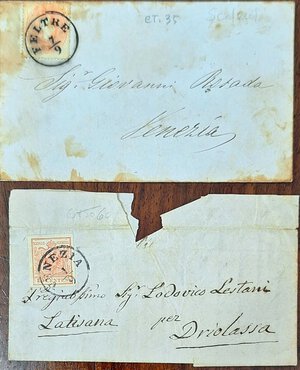 FELTRE
7/9
CT. 35
Sig.r Giovanni Rosada
Venezia
VENEZIA
Pregiatissimo Sig.r Lodovico Lestani
Latisana per Driolassa